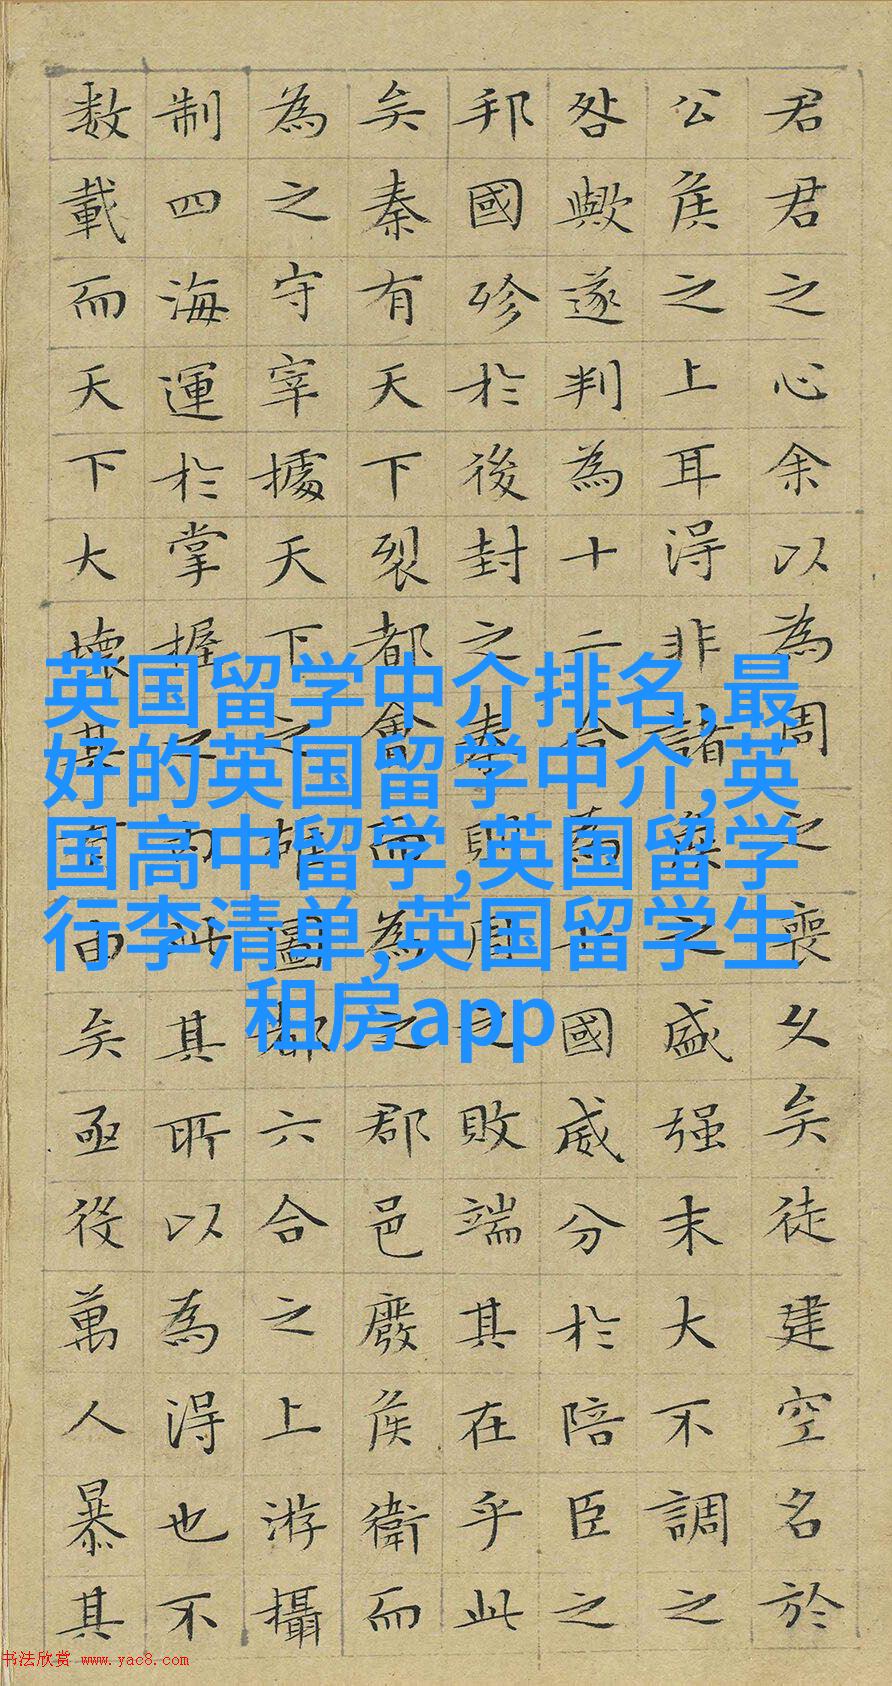 君君之心余以為周之喪久矣徒建空名於
公侯之上耳得非諸侯之盛强末大不調之
咎歟遂判為十二合為七國威分於陪臣之
邦國殄於後封之秦則周之敗端其在乎此
矣秦有天下裂都會而為之郡邑廢侯衛而
為之守宰據天下之雄圖都六合之上游攝
制四海運於掌握之內此其所以為得也不
数載而天下大壞其有由矣亟役萬人暴其
英国留学中介排名,最
好的英国留学中介,英
国高中留学,英国留学
行李清单,英国留学生
租房app
书法欣赏 www.yac8.com